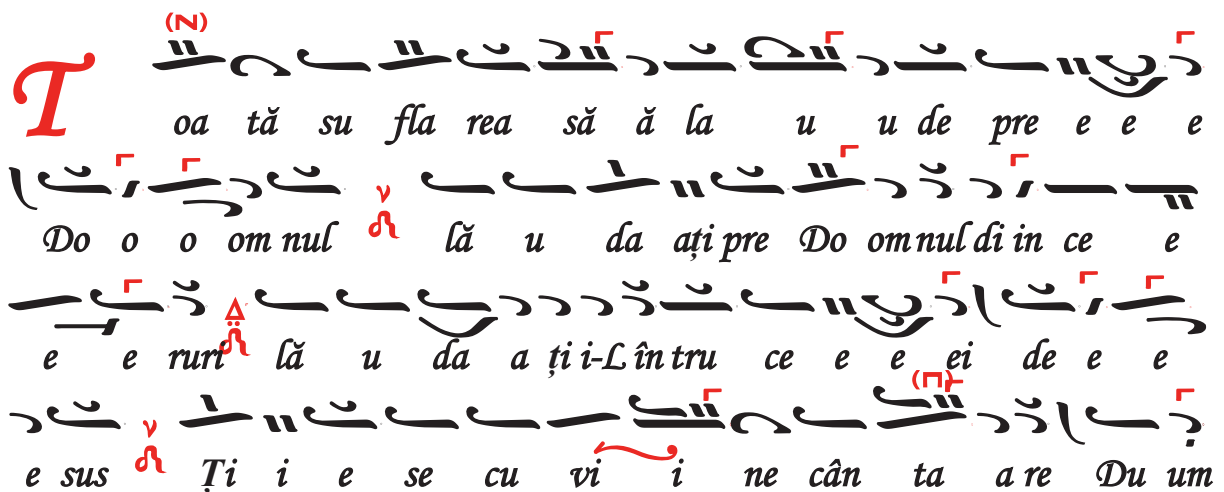 (N)
T oa tă su fla rea să ă la u u de pre e e e
Do o o om nul lă u da ați pre Do om nul di in ce e
e e ruri lă u da a ți i-L în tru ce e e ei de e e
(Π)
e sus Ți i e se cu vi i ne cân ta a re Du um